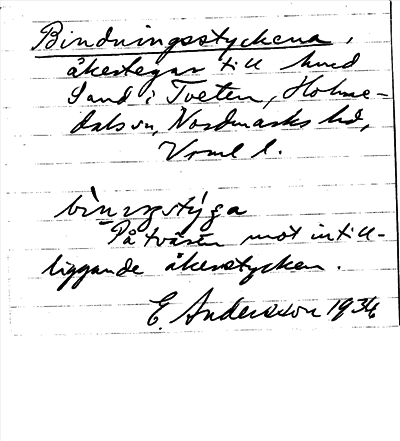 Bindningsstyckena,
åkertegar till hmd
Sand i Tveten, Holme-
dals sn, Nordmarks hd,
Vrml l.
bìnıŋstýga
På tvären mot intill-
liggande åkerstycken.
E. Andersson 1936